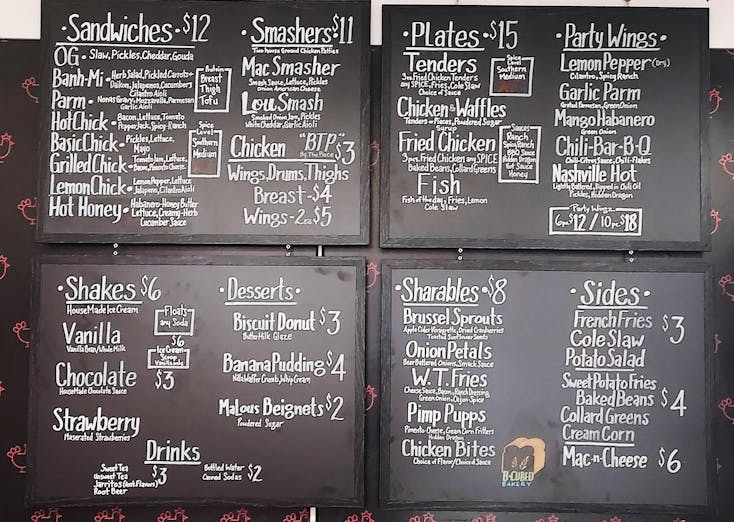 Sandwiches • $12
OG • Slaw, Pickles, Cheddar, Gouda
Banh-Mi • Herb Salad, Pickled Carrots +
Daikon, Jalapenos, Cucumbers
Cilantro Aioli
Parm • Nonna's Gravy, Mozzarella, Parmesan
Garlic Aioli
Hot Chick • Bacon, Lettuce, Tomato
Pepper Jack, Spicy Ranch
Basic Chick • Pickles, Lettuce,
Mayo
Grilled Chick • Tomato Jam, Lettuce,
Bacon, Pimento Cheese
Lemon Chick • Lemon Pepper, Lettuce
Jalapeno, Cilantro Aioli
Hot Honey • Habanero-Honey Butter
Lettuce, Creamy-Herb
Cucumber Sauce
Protein
Breast
Thigh
Tofu
Spice
Level
Southern
Medium
• Smashers • $11
Two house Ground Chicken Patties
Mac Smasher
Smash Sauce, Lettuce, Pickles
Onion, American Cheese
Lou Smash
Smoked Onion Jam, Pickles
White Cheddar, Garlic Aioli
Chicken "BTP" $3
By The Piece
Wings, Drums, Thighs
Breast - $4
Wings - 2ea $5
• Plates • $15
Tenders
3 pc Fried Chicken Tenders
any SPICE, Fries, Cole Slaw
Choice of Sauce
Chicken & Waffles
Tenders or Pieces, Powdered Sugar
Syrup
Fried Chicken
3 pcs. Fried Chicken any SPICE
Baked Beans, Collard Greens
Fish
Fish of the day, Fries, Lemon
Cole Slaw
Spice
Level
Southern
Medium
Sauces
Ranch
Spicy Ranch
BBQ Sauce
Hidden Dragon
Hot Sauce
Honey
• Party Wings •
Lemon Pepper (Dry)
Cilantro, Spicy Ranch
Garlic Parm
Grated Parmesan, Green Onion
Mango Habanero
Green Onions
Chili-Bar-B-Q
Chili-Citrus Sauce, Chili-Flakes
Nashville Hot
Lightly Battered, Dipped in Chili Oil
Pickles, Hidden Dragon
Party Wings
6 pc $12 / 10 pc $18
• Shakes • $6
House Made Ice Cream
Vanilla
Vanilla Bean, Whole Milk
Chocolate
House Made Chocolate Sauce
Strawberry
Macerated Strawberries
Floats
any Soda
$6
Ice Cream
Scoop
$3
• Desserts •
Biscuit Donut $3
Butter Milk Glaze
Banana Pudding $4
Nilla Wafer Crumb, Whip Cream
Malous Beignets $2
Powdered Sugar
Drinks
Sweet Tea
Unsweet Tea
Jarritos (Asst. Flavors)
Root Beer
$3
Bottled Water
Canned Sodas
$2
• Sharables • $8
Brussel Sprouts
Apple Cider Vinaigrette, Dried Cranberries
Toasted Sunflower Seeds
Onion Petals
Beer Battered Onions, Smack Sauce
W.T. Fries
Cheese Sauce, Bacon, Ranch Dressing,
Green Onion, Cajun Spice
Pimp Pupps
Pimento Cheese, Cream Corn Fritters
Hidden Dragon
Chicken Bites
Choice of Flavor / Choice of Sauce
B-CUBED
BAKERY
• Sides •
French Fries
Cole Slaw
Potato Salad
$3
Sweet Potato Fries
Baked Beans
Collard Greens
Cream Corn
$4
Mac-n-Cheese $6